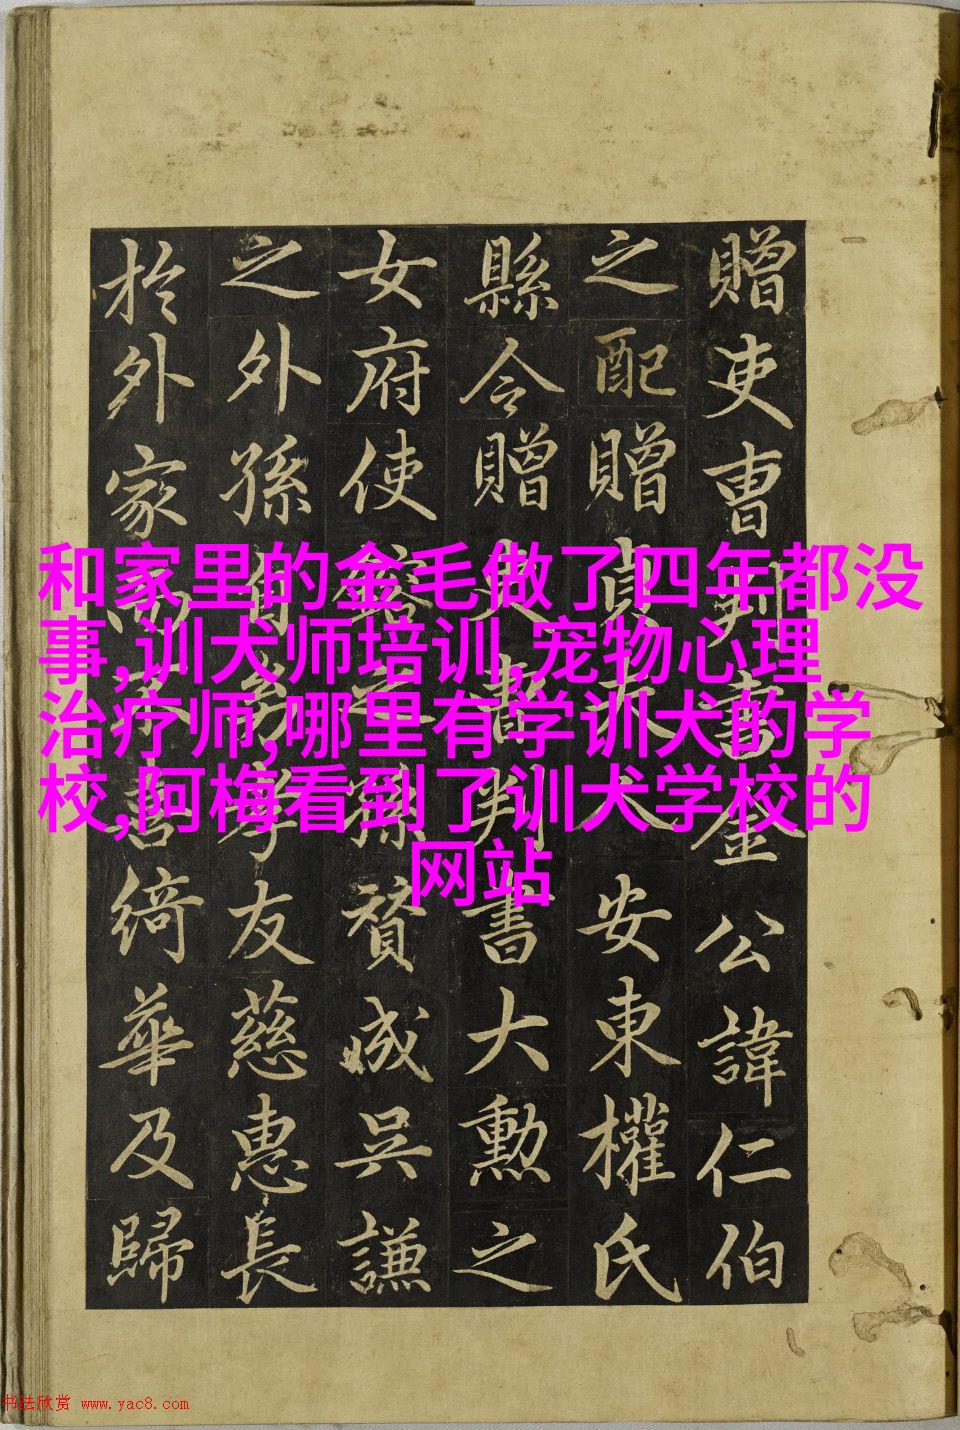 和家里的金毛做了四年都没
事,训犬师培训,宠物心理
治疗师,哪里有学训犬的学
校,阿梅看到了训犬学校的
网站
贈吏曹判書金公諱仁伯
之配贈貞夫人安東權氏
縣令贈吏曹判書大勳之
女府使孫贊成吳謙
之外孫自幼孝友慈惠長
於外家不喜綺華及歸
书法欣赏 www.yac8.com